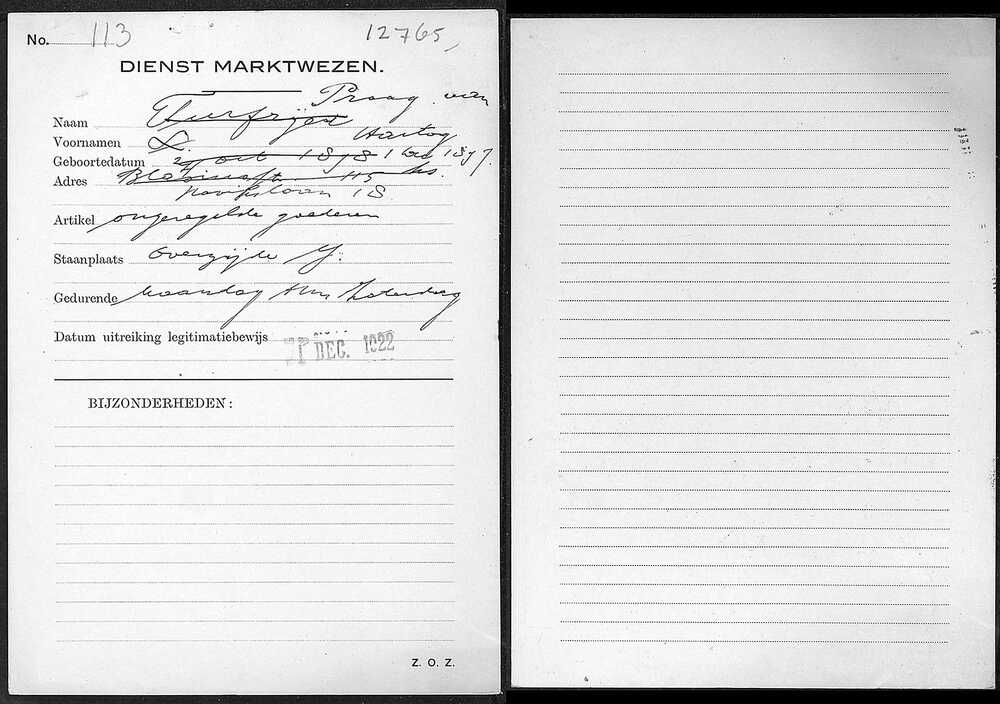 No. 113 12765
DIENST MARKTWEZEN.
Praag van
Naam Turfrijer
Voornamen S. Hartog
Geboortedatum 2 oct 1878 1 Dec 1877.
Adres 115 hs.
18
Artikel ongeregelde goederen
Staanplaats overzijde IJ:
Gedurende Maandag t/m Zaterdag
Datum uitreiking legitimatiebewijs DEC. 1922
BIJZONDERHEDEN:
Z. O. Z.